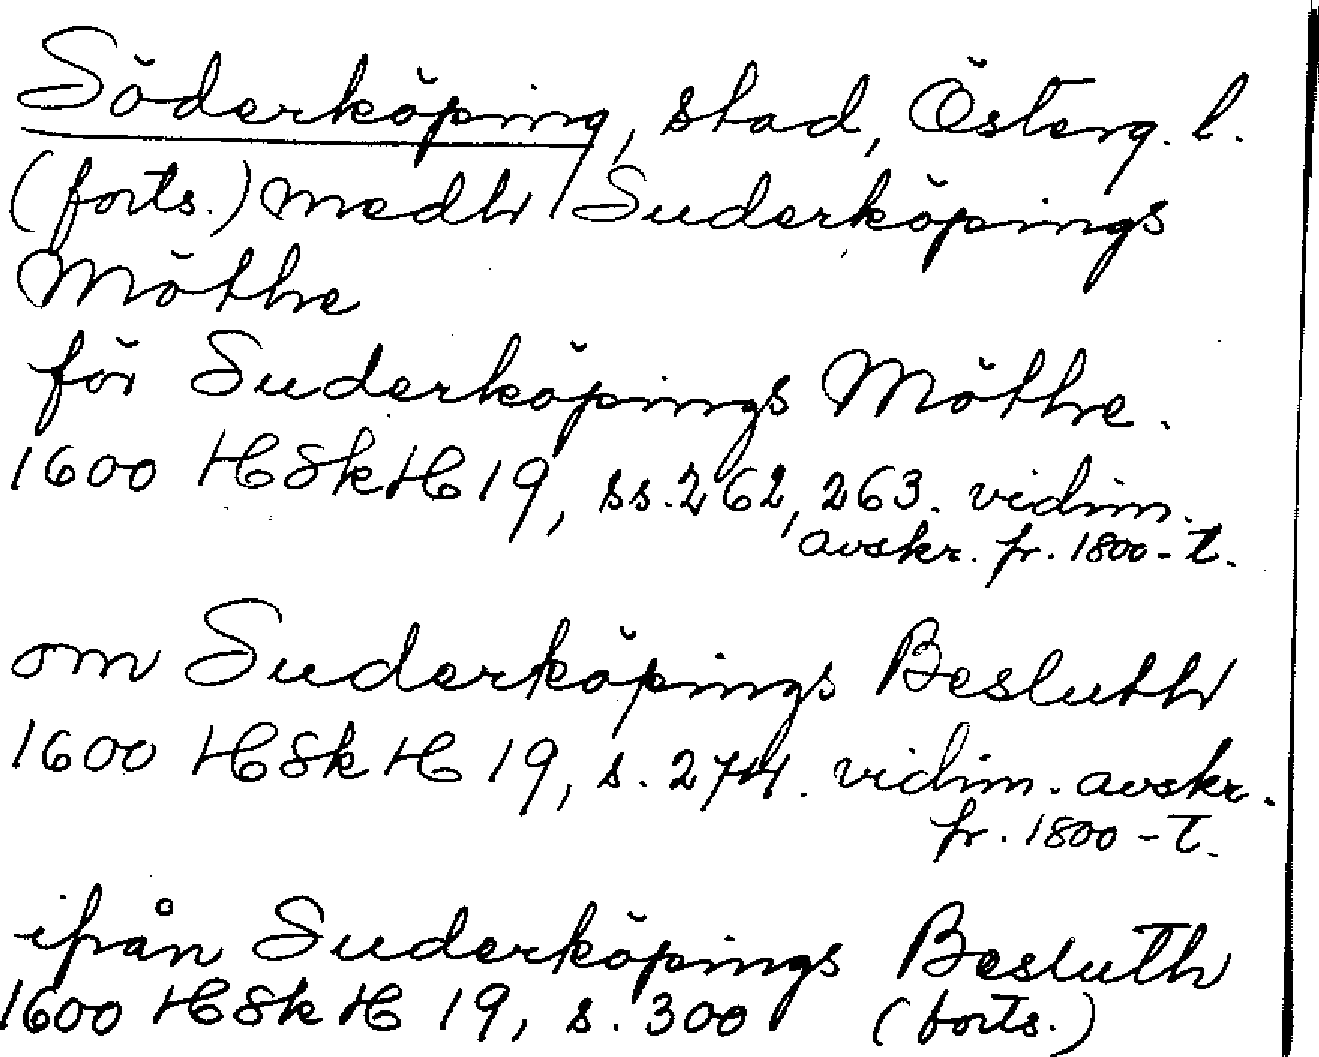 Söderköping, stad, Österg. l.
(forts.) medh Suderköpings
Möthe
för Suderköpings Möthe.
1600 HSkH 19, ss. 262, 263. vidim.
avskr. fr. 1800-t.
om Suderköpings Besluth
1600 HSkH 19, s. 274. vidim. avskr.
fr. 1800-t.
ifrån Suderköpings Besluth
1600 HSkH 19, s. 300 (forts.)